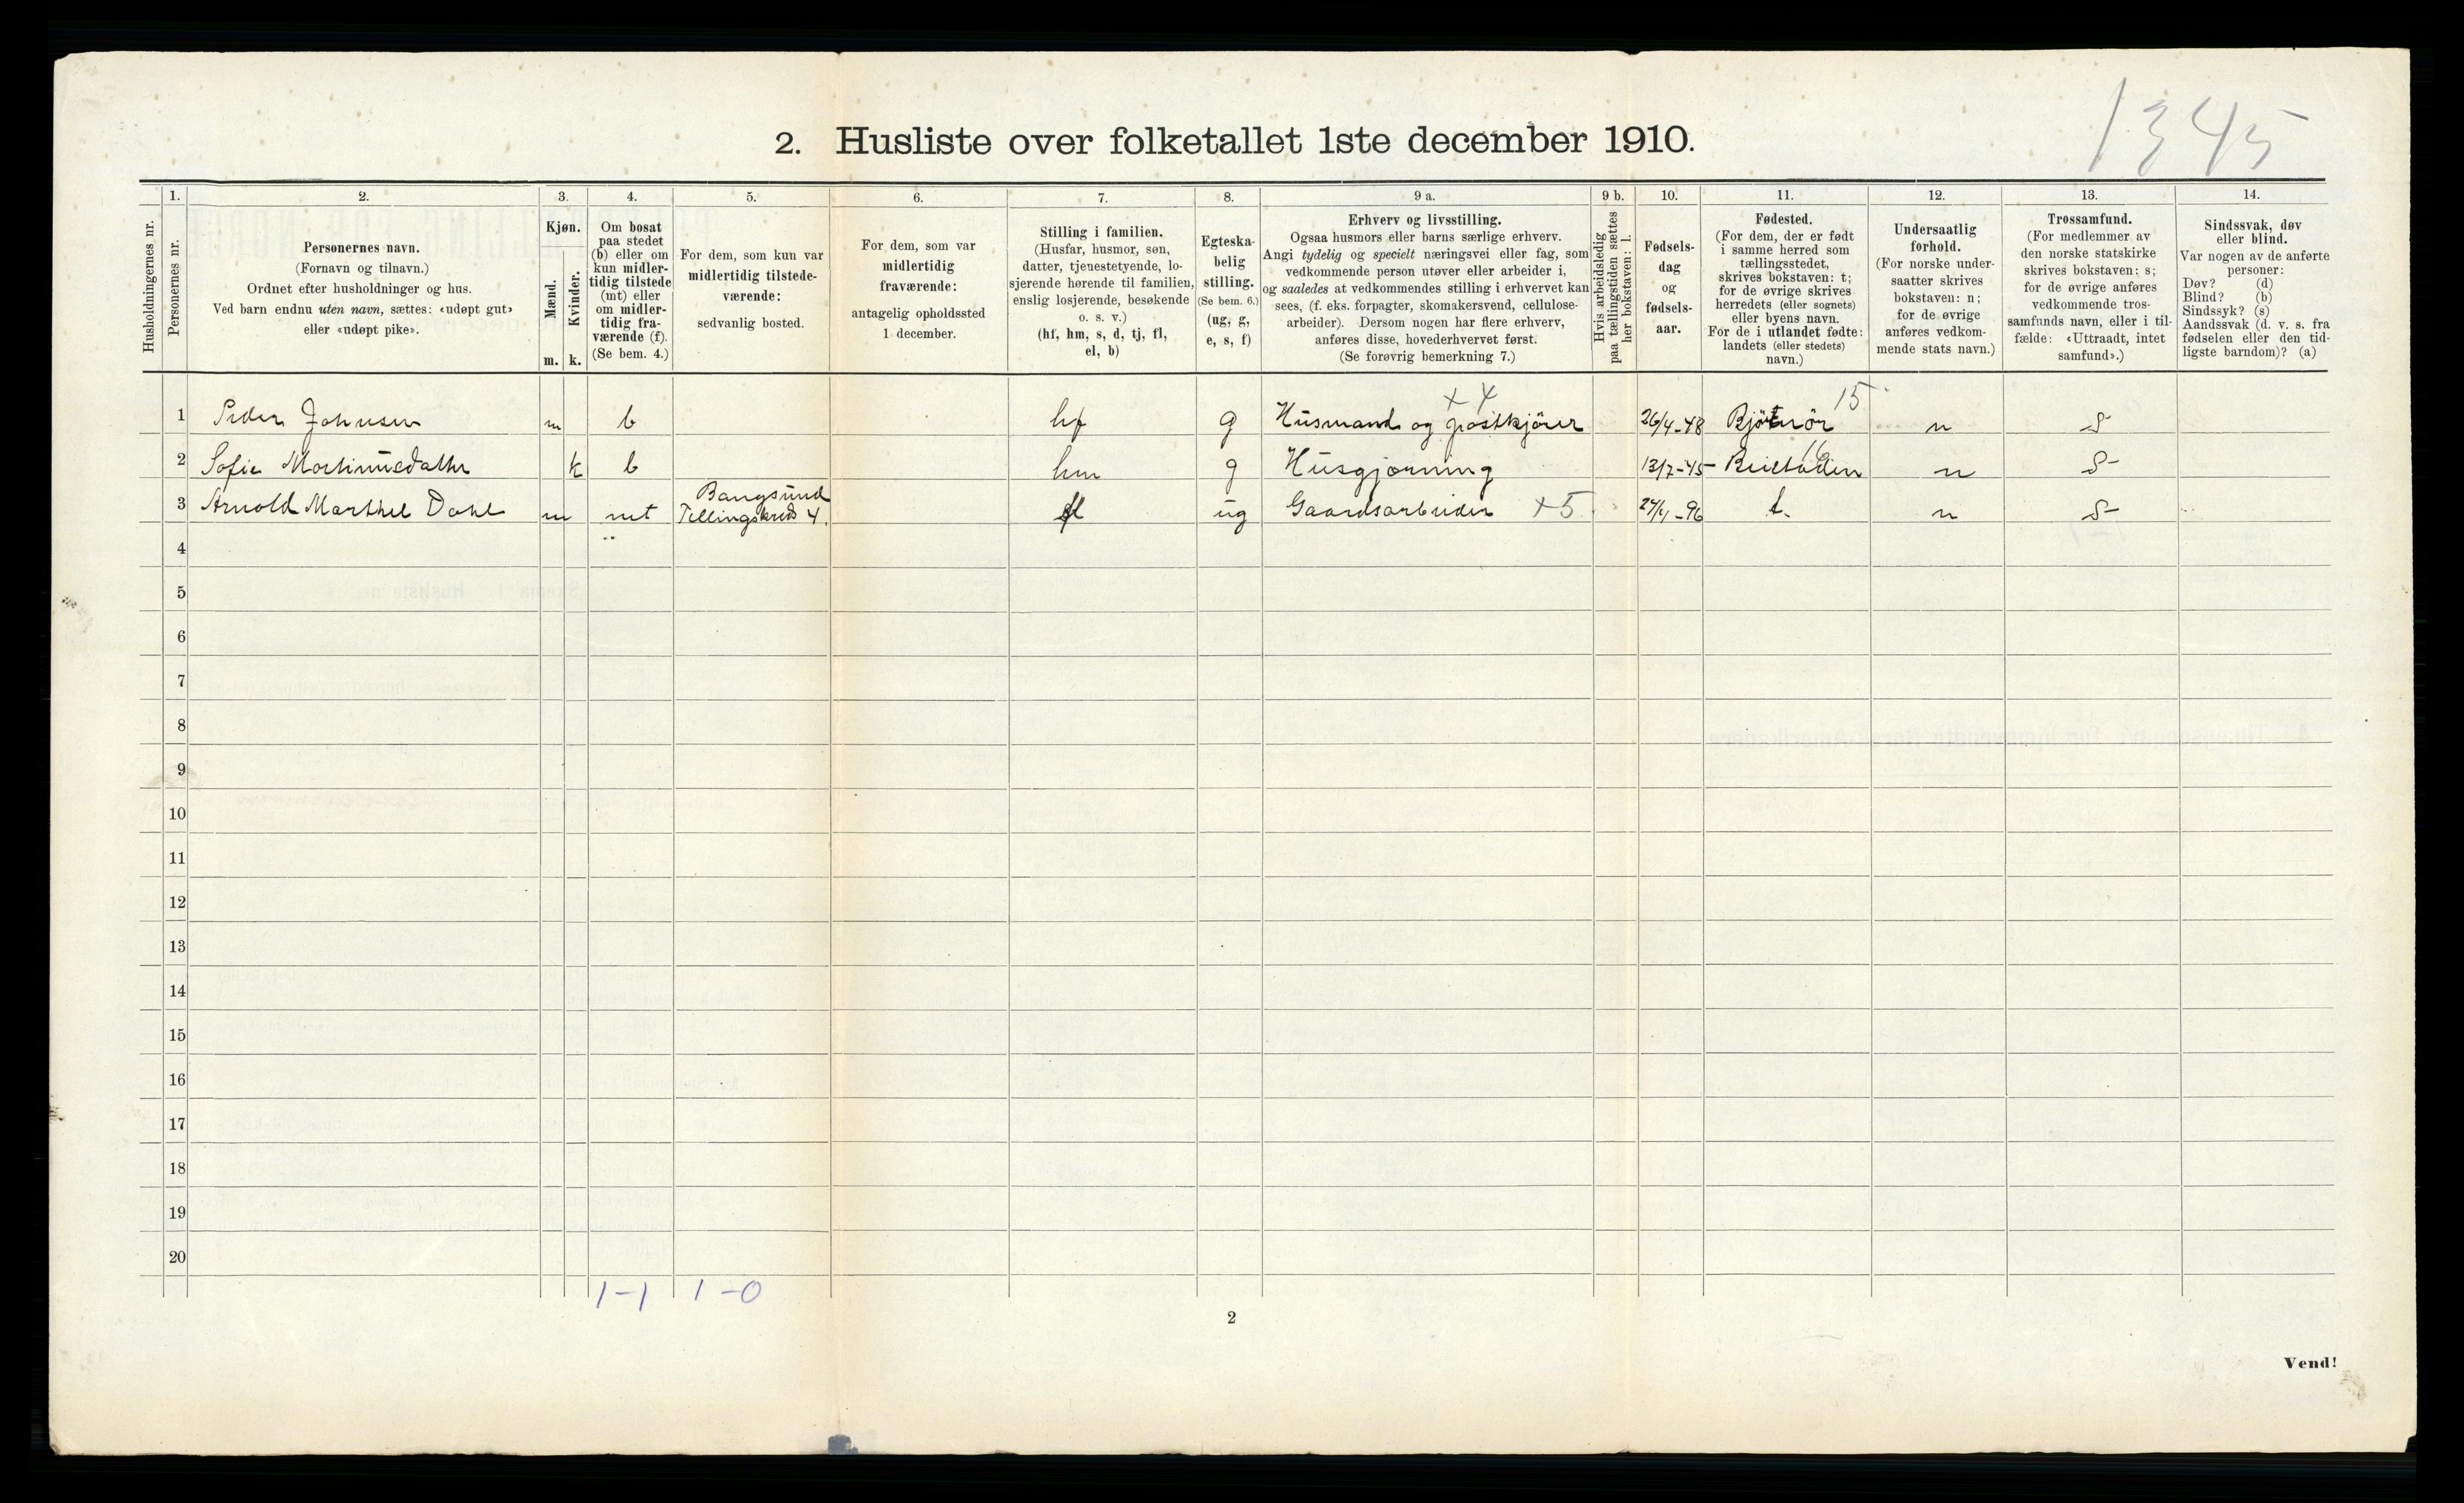 1345
2. Husliste over folketallet 1ste december 1910.
Husholdningernes nr.
1. Personernes nr.
2. Personernes navn.
(Fornavn og tilnavn.)
Ordnet efter husholdninger og hus.
Ved barn endnu uten navn, sættes: «udøpt gut»
eller «udøpt pike».
3. Kjøn.
Mænd. m.
Kvinder. k.
4. Om bosat
paa stedet
(b) eller om
kun midler-
tidig tilstede
(mt) eller
om midler-
tidig fra-
værende (f).
(Se bem. 4.)
5. For dem, som kun var
midlertidig tilstede-
værende:
sedvanlig bosted.
6. For dem, som var
midlertidig
fraværende:
antagelig opholdssted
1 december.
7. Stilling i familien.
(Husfar, husmor, søn,
datter, tjenestetyende, lo-
sjerende hørende til familien,
enslig losjerende, besøkende
o. s. v.)
(hf, hm, s, d, tj, fl,
el, b)
8. Egteska-
belig
stilling.
(Se bem. 6.)
(ug, g,
e, s, f)
9 a. Erhverv og livsstilling.
Ogsaa husmors eller barns særlige erhverv.
Angi tydelig og specielt næringsvei eller fag, som
vedkommende person utøver eller arbeider i,
og saaledes at vedkommendes stilling i erhvervet kan
sees, (f. eks. forpagter, skomakersvend, cellulose-
arbeider). Dersom nogen har flere erhverv,
anføres disse, hovederhvervet først.
(Se forøvrig bemerkning 7.)
9 b. Hvis arbeidsledig
paa tællingstiden sættes
her bokstaven: l.
10. Fødsels-
dag
og
fødsels-
aar.
11. Fødested.
(For dem, der er født
i samme herred som
tællingsstedet,
skrives bokstaven: t;
for de øvrige skrives
herredets (eller sognets)
eller byens navn.
For de i utlandet fødte:
landets (eller stedets)
navn.)
12. Undersaatlig
forhold.
(For norske under-
saatter skrives
bokstaven: n;
for de øvrige
anføres vedkom-
mende stats navn.)
13. Trossamfund.
(For medlemmer av
den norske statskirke
skrives bokstaven: s;
for de øvrige anføres
vedkommende tros-
samfunds navn, eller i til-
fælde: «Uttraadt, intet
samfund».)
14. Sindssvak, døv
eller blind.
Var nogen av de anførte
personer:
Døv? (d)
Blind? (b)
Sindssyk? (s)
Aandssvak (d. v. s. fra
fødselen eller den tid-
ligste barndom)? (a)
+ 4 15
1 Peder Johnsen m b hf g Husmand og postkjörer 26/4-48 Bjørnör n S
16
2 Sofie Mortinusdatter k b hm g Husgjerning 13/7-45 Beitstaden n S
Bangsund
3 Arnold Marthel Dahl m mt Tellingskreds 4. fl ug Gaardsarbeider +5 -96 t. n S
4
5
6
7
8
9
10
11
12
13
14
15
16
17
18
19
20
1-1 1-0
2
Vend!